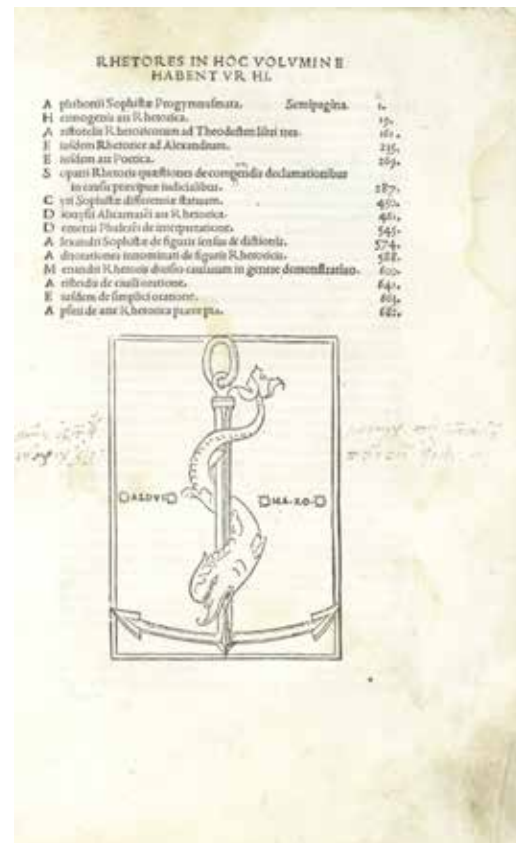 RHETORES IN HOC VOLVMINE
HABENTVR HI.
Aphthonii Sophistæ Progymnasmata. Semipagina. 1.
Hermogenis ars Rhetorica. 19.
Aristotelis Rhetoricorum ad Theodecten libri tres. 161.
Eiusdem Rhetorice ad Alexandrum. 235.
Eiusdem ars Poetica. 269.
Sopatri Rhetoris quæstiones de componendis declamationibus
in causis præcipue iudicialibus. 287.
Cyri Sophistæ differentiæ statuum. 450.
Dionysii Alicarnasei ars Rhetorica. 461.
Demetrii Phalerei de interpretatione. 545.
Alexandri Sophistæ de figuris sensus & dictionis. 574.
Adnotationes innominati de figuris Rhetoricis. 588.
Menandri Rhetoris diuisio causarum in genere demonstratiuo. 600.
Aristidis de ciuili oratione. 641.
Eiusdem de simplici oratione. 663.
Apsini de arte Rhetorica præcepta. 682.
ALDVS MA.RO.